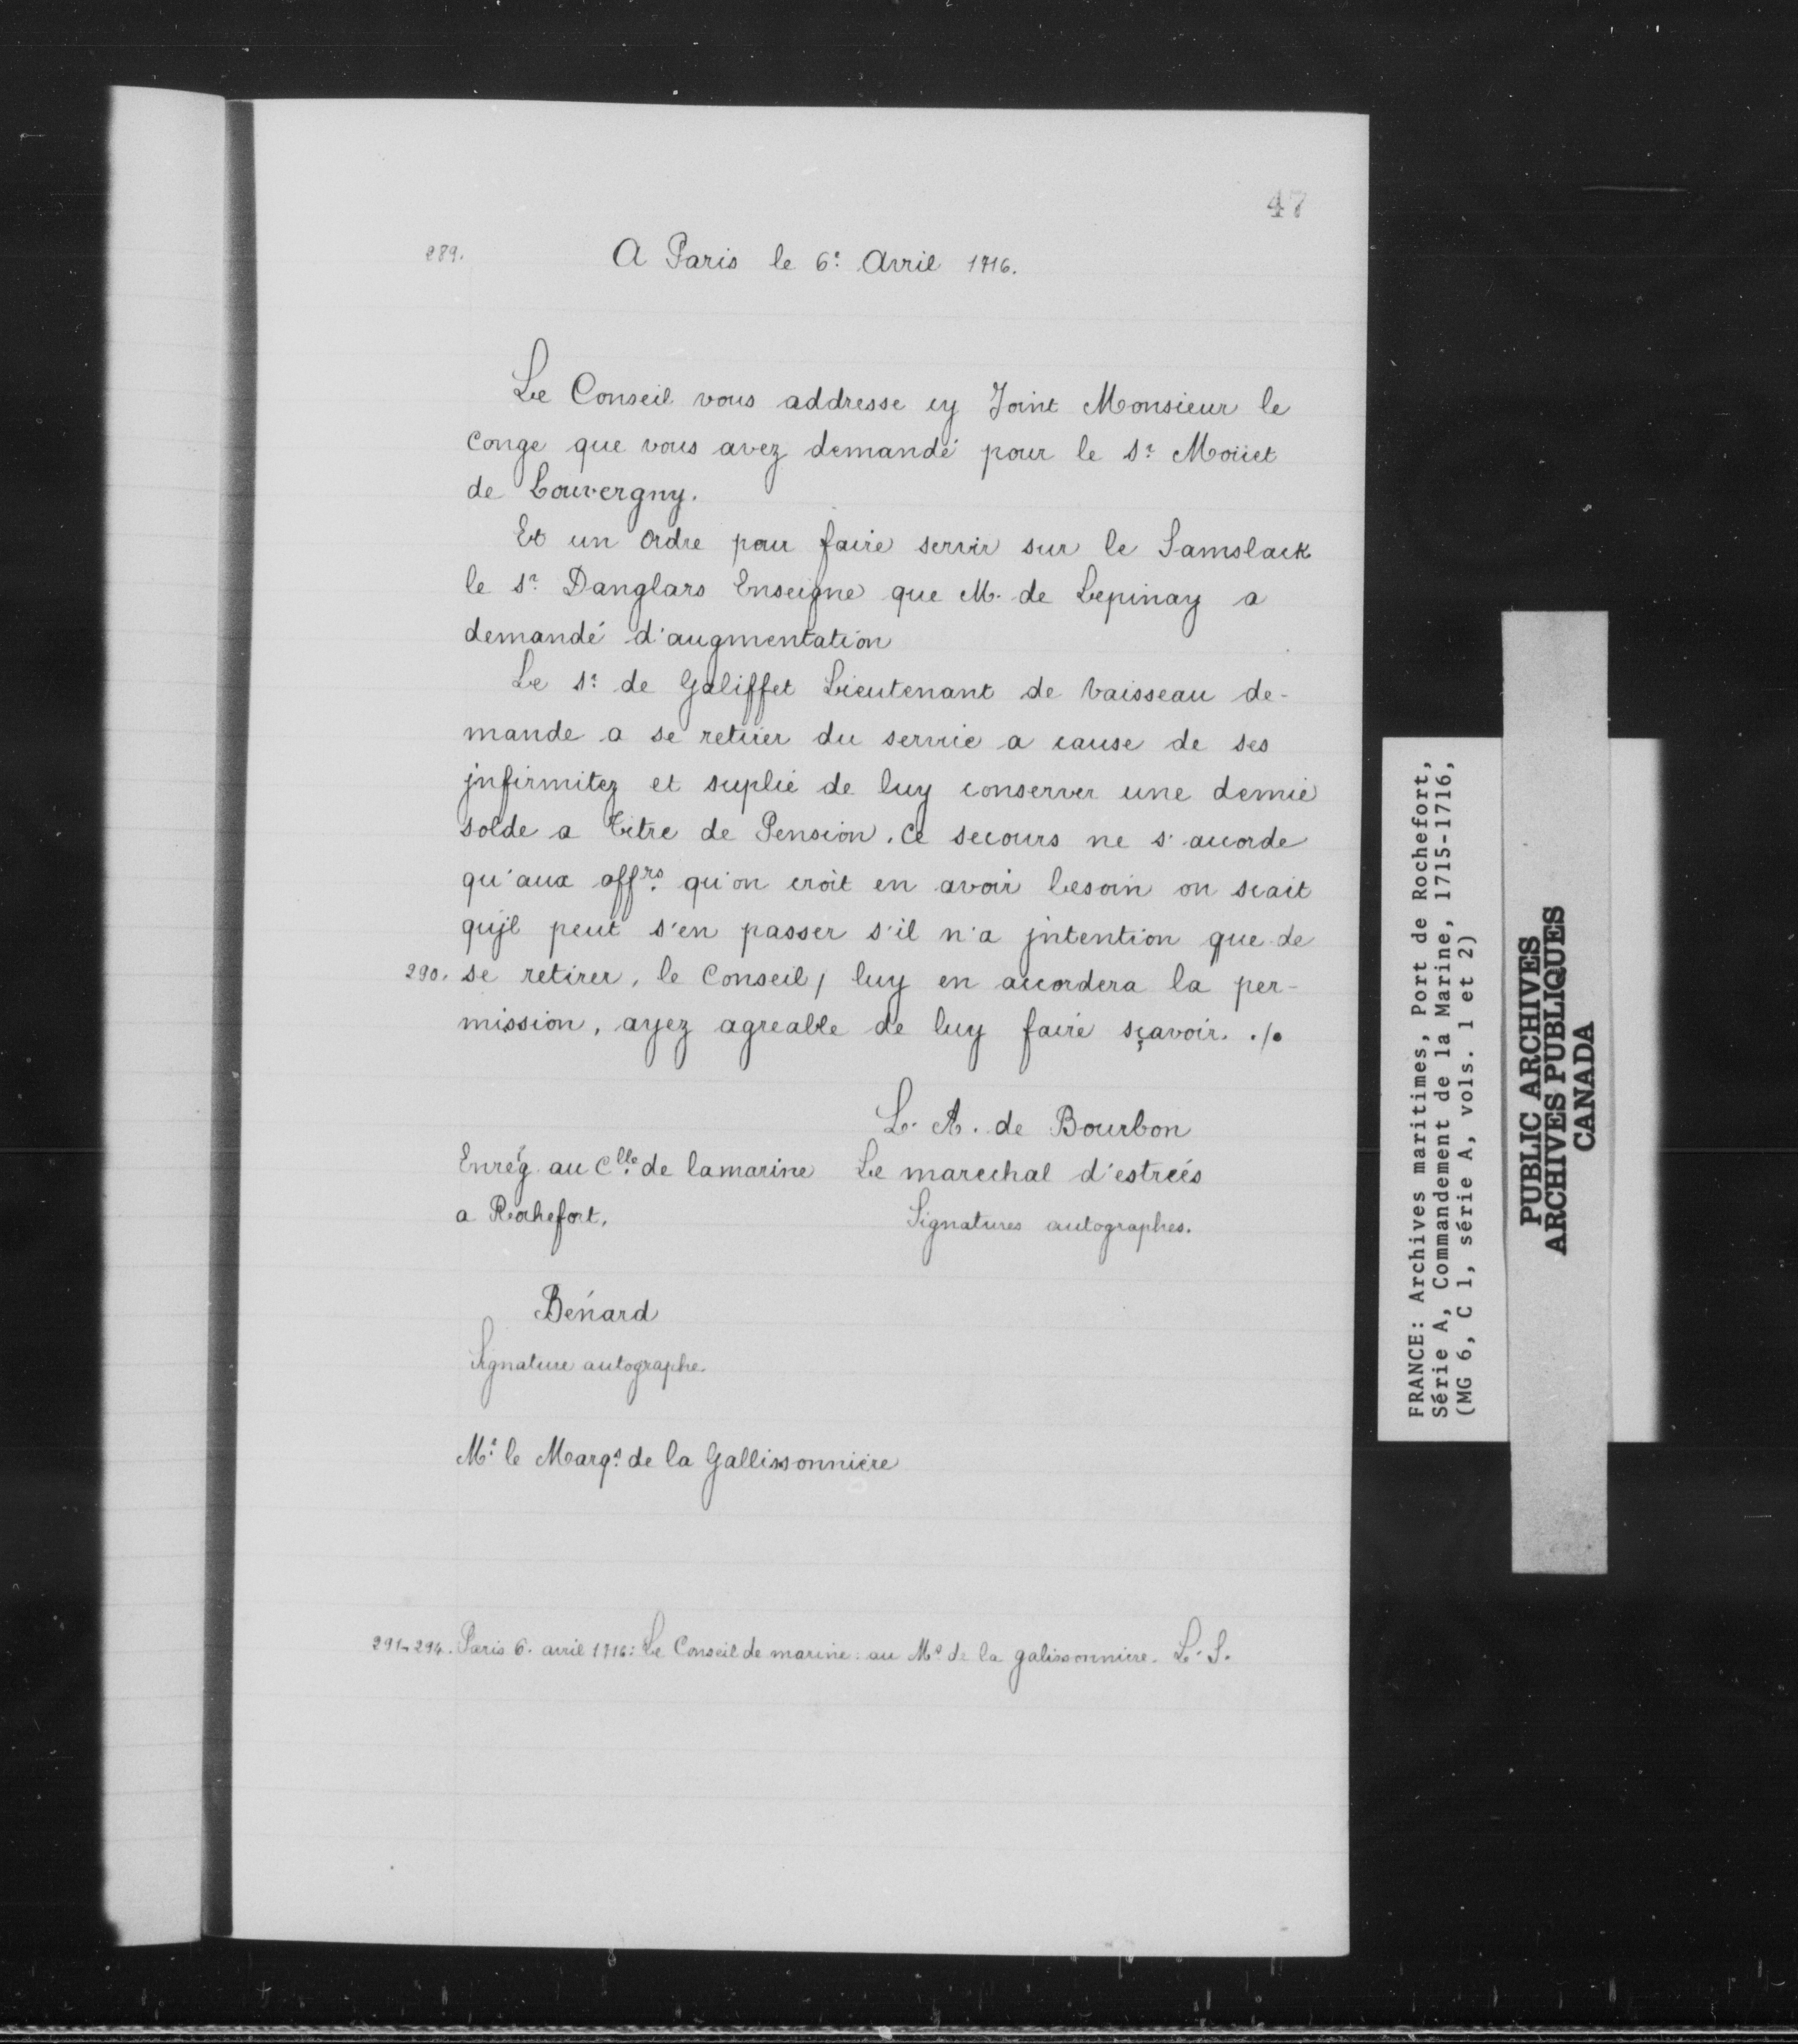 47
289. A Paris le 6.e Avril 1716.
Le Conseil vous addresse cy Joint Monsieur le
Conge que vous avez demandé pour le Sr. Moüet
de Louvergny.
Et un Ordre pour faire servir sur le Samslack
le Sr. Danglars Enseigne que M. de Lepinay a
demandé d'augmentation
Le Sr. de Galiffet Lieutenant de Vaisseau de-
mande a se retirer du service a cause de ses
jnfirmitez et suplie de luy conserver une demie
solde a Titre de Pension. Ce secours ne s'accorde
qu'aux offrs. qu'on croit en avoir besoin on scait
qujl peut s'en passer s'il n'a jntention que de
290. se retirer, le Conseil / luy en accordera la per-
mission, ayez agreable de luy faire sçavoir. ./.
L. A. de Bourbon
Enrég. au Clle. de lamarine Le marechal d'estrées
a Rochefort. Signatures autographes.
Bénard
Signature autographe.
Mr. le Marqs. de la Gallissonniere
291-294. Paris 6. avril 1716: Le Conseil de marine au Ms. de la galissonniere. L. S.
FRANCE: Archives maritimes, Port de Rochefort,
Série A, Commandement de la Marine, 1715-1716,
(MG 6, C 1, série A, vols. 1 et 2)
PUBLIC ARCHIVES
ARCHIVES PUBLIQUES
CANADA